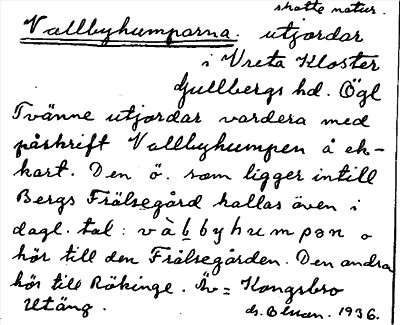 skatte natur.
Vallbyhumparna. utjordar
i Vreta Kloster
Gullbergs hd. Ögl
Tvänne utjordar vardera med
påskrift Vallbyhumpen å ek-
kart. Den ö. som ligger intill
Bergs Frälsegård kallas även i
dagl. tal: vàbbyhumpən o
hör till den Frälsegården. Den andra
hör till Rökinge. Äv = Kongsbro
Utäng. Olsson. 1936.